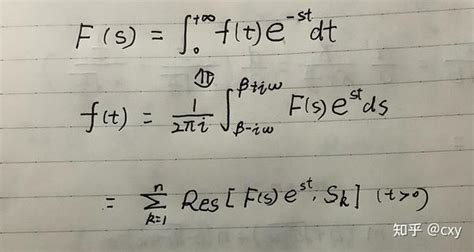 F(s) = ∫₀^{+∞} f(t) e^{-st} dt
⇕
f(t) = \frac{1}{2πi} ∫_{β-iω}^{β+iω} F(s) e^{st} ds
= \sum_{k=1}^{n} Res [ F(s) e^{st}, S_k ] (t>0)
知乎 @cxy